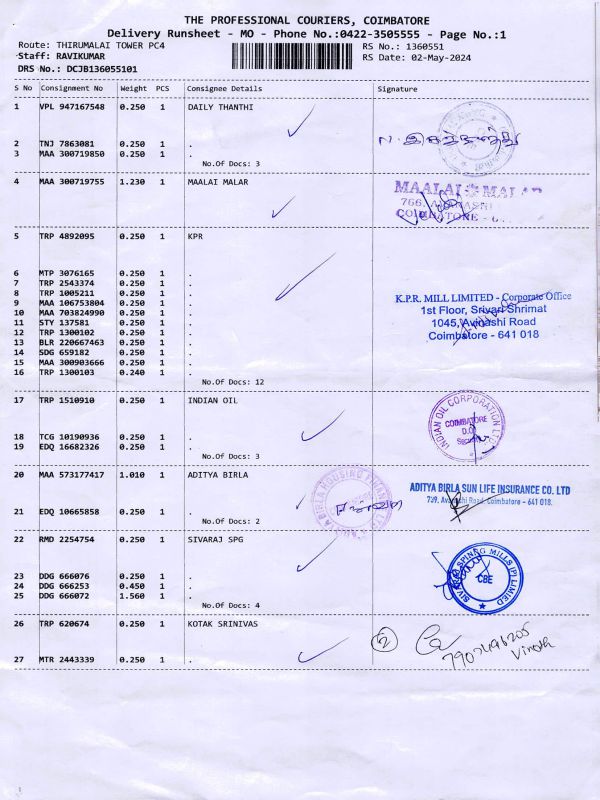 THE PROFESSIONAL COURIERS, COIMBATORE
Delivery Runsheet - MO - Phone No.:0422-3505555 - Page No.:1
Route: THIRUMALAI TOWER PC4
RS No.: 1360551
Staff: RAVIKUMAR
RS Date: 02-May-2024
DRS No.: DCJB136055101
S No Consignment No Weight PCS Consignee Details Signature
1 VPL 947167548 0.250 1 DAILY THANTHI
2 TNJ 7863081 0.250 1 .
3 MAA 300719850 0.250 1 .
No.Of Docs: 3
4 MAA 300719755 1.230 1 MAALAI MALAR
MAALAI MALAR
766,
COIMBATORE - 6
5 TRP 4892095 0.250 1 KPR
6 MTP 3076165 0.250 1 .
7 TRP 2543374 0.250 1 .
8 TRP 1005211 0.250 1 .
9 MAA 106753804 0.250 1 .
10 MAA 703824990 0.250 1 .
11 STY 137581 0.250 1 .
12 TRP 1300102 0.250 1 .
13 BLR 220667463 0.250 1 .
14 SDG 659182 0.250 1 .
15 MAA 300903666 0.250 1 .
16 TRP 1300103 0.240 1 .
No.Of Docs: 12
K.P.R. MILL LIMITED - Corporate Office
1st Floor, Srivari Shrimat
1045, Avinashi Road
Coimbatore - 641 018
17 TRP 1510910 0.250 1 INDIAN OIL
18 TCG 10190936 0.250 1 .
19 EDQ 16682326 0.250 1 .
No.Of Docs: 3
INDIAN OIL CORPORATION LTD
COIMBATORE
D.O.
20 MAA 573177417 1.010 1 ADITYA BIRLA
21 EDQ 10665858 0.250 1 .
No.Of Docs: 2
BIRLA HOUSING FINANCE
ADITYA BIRLA SUN LIFE INSURANCE CO. LTD
739, Avinashi Road, Coimbatore - 641 018.
22 RMD 2254754 0.250 1 SIVARAJ SPG
23 DDG 666076 0.250 1 .
24 DDG 666253 0.450 1 .
25 DDG 666072 1.560 1 .
No.Of Docs: 4
SIVARAJ SPINNG MILLS (P) LIMIED
CBE
26 TRP 620674 0.250 1 KOTAK SRINIVAS
2
Vinoth
27 MTR 2443339 0.250 1 .